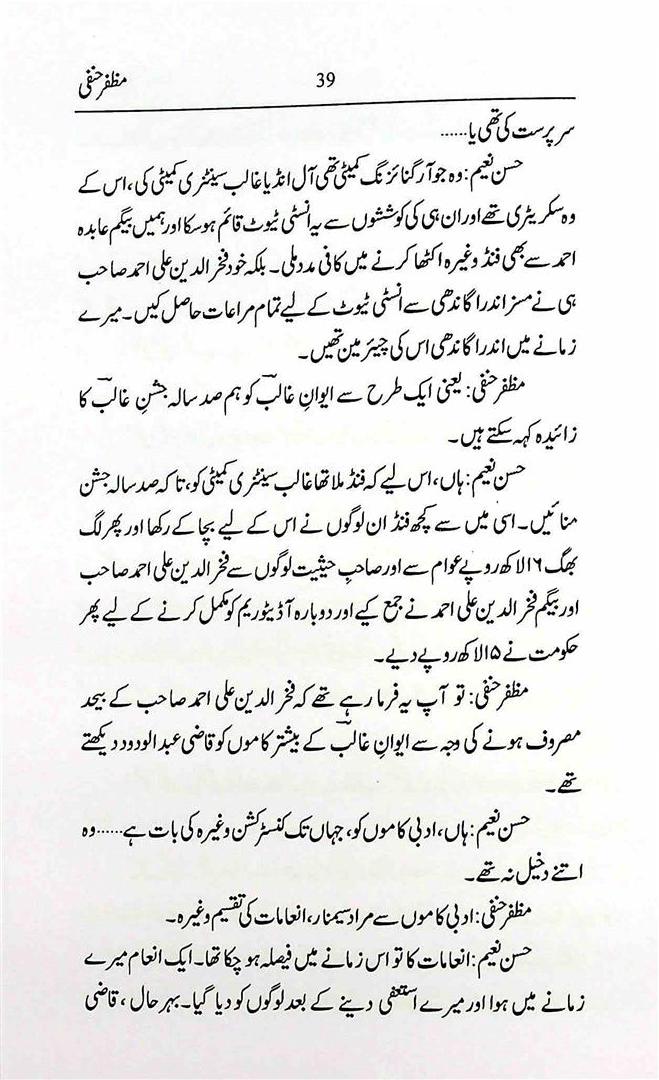 مظفر حنفی
39
سرپرست کی تھی یا......
حسن نعیم: وہ جو آرگنائزنگ کمیٹی تھی آل انڈیا غالب سینٹنری کمیٹی کی، اس کے
وہ سکریٹری تھے اور ان ہی کی کوششوں سے یہ انسٹی ٹیوٹ قائم ہو سکا اور ہمیں بیگم عابدہ
احمد سے بھی فنڈ وغیرہ اکٹھا کرنے میں کافی مدد ملی۔ بلکہ خود فخر الدین علی احمد صاحب
ہی نے مسز اندرا گاندھی سے انسٹی ٹیوٹ کے لیے تمام مراعات حاصل کیں۔ میرے
زمانے میں اندرا گاندھی اس کی چیئرمین تھیں۔
مظفر حنفی: یعنی ایک طرح سے ایوانِ غالبؔ کو ہم صد سالہ جشنِ غالبؔ کا
زائیدہ کہہ سکتے ہیں۔
حسن نعیم: ہاں، اس لیے کہ فنڈ ملا تھا غالب سینٹنری کمیٹی کو، تاکہ صد سالہ جشن
منائیں۔ اسی میں سے کچھ فنڈ ان لوگوں نے اس کے لیے بچا کے رکھا اور پھر لگ
بھگ ۱۶ لاکھ روپے عوام سے اور صاحبِ حیثیت لوگوں سے فخر الدین علی احمد صاحب
اور بیگم فخر الدین علی احمد نے جمع کیے اور دوبارہ آڈیٹوریم کو مکمل کرنے کے لیے پھر
حکومت نے ۱۵ لاکھ روپے دیے۔
مظفر حنفی: تو آپ یہ فرما رہے تھے کہ فخر الدین علی احمد صاحب کے بیحد
مصروف ہونے کی وجہ سے ایوانِ غالبؔ کے بیشتر کاموں کو قاضی عبدالودود دیکھتے
تھے۔
حسن نعیم: ہاں، ادبی کاموں کو، جہاں تک کنسٹرکشن وغیرہ کی بات ہے...... وہ
اتنے دخیل نہ تھے۔
مظفر حنفی: ادبی کاموں سے مراد سیمنار، انعامات کی تقسیم وغیرہ۔
حسن نعیم: انعامات کا تو اس زمانے میں فیصلہ ہو چکا تھا۔ ایک انعام میرے
زمانے میں ہوا اور میرے استعفی دینے کے بعد لوگوں کو دیا گیا۔ بہرحال، قاضی